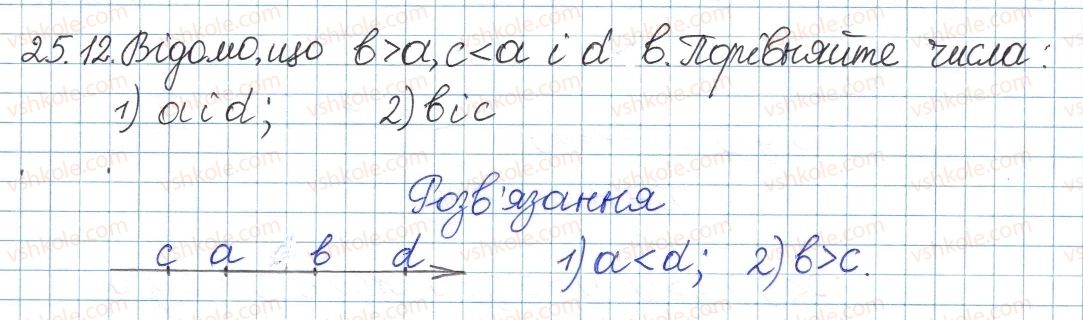 25.12. Відомо, що в>а, с<а і d в. Порівняйте числа:
1) а і d; 2) в і с
Розв'язання
с а в d 1) а<d; 2) в>с.